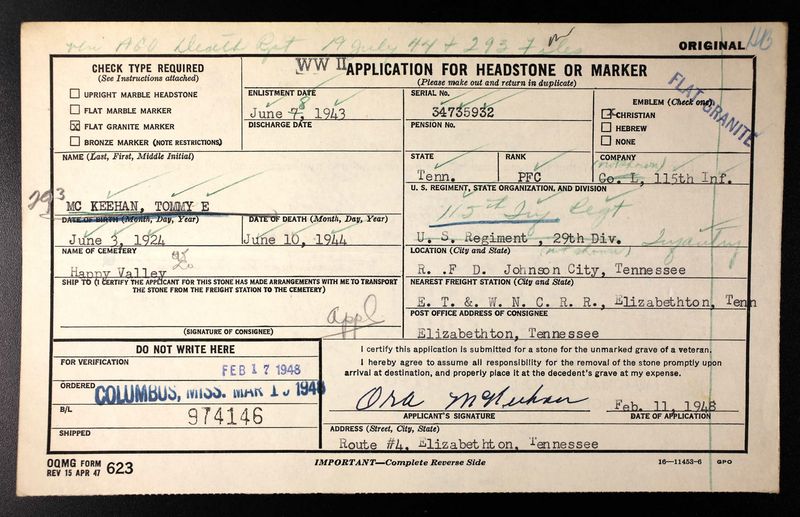 ren AGO Death Rpt 19 July 44 + 293 Files
ORIGINAL
WW II
APPLICATION FOR HEADSTONE OR MARKER
(Please make out and return in duplicate)
CHECK TYPE REQUIRED
(See Instructions attached)
UPRIGHT MARBLE HEADSTONE
FLAT MARBLE MARKER
X FLAT GRANITE MARKER
BRONZE MARKER (NOTE RESTRICTIONS)
ENLISTMENT DATE
June 7, 1943
8
DISCHARGE DATE
SERIAL No.
34735932
PENSION No.
EMBLEM (Check one)
X CHRISTIAN
HEBREW
NONE
FLAT GRANITE
NAME (Last, First, Middle Initial)
293
MC KEEHAN, TOMMY E
STATE
Tenn.
RANK
PFC
COMPANY
(not shown)
Co. L, 115th Inf.
U. S. REGIMENT, STATE ORGANIZATION, AND DIVISION
115th Inf Regt
U. S. Regiment , 29th Div.
Infantry
DATE OF BIRTH (Month, Day, Year)
June 3, 1924
DATE OF DEATH (Month, Day, Year)
June 10, 1944
NAME OF CEMETERY
Happy Valley
LOCATION (City and State)
(not shown)
R. .F D. Johnson City, Tennessee
SHIP TO (I CERTIFY THE APPLICANT FOR THIS STONE HAS MADE ARRANGEMENTS WITH ME TO TRANSPORT
THE STONE FROM THE FREIGHT STATION TO THE CEMETERY)
Appl
(SIGNATURE OF CONSIGNEE)
NEAREST FREIGHT STATION (City and State)
E. T. &. W. N. C. R. R., Elizabethton, Tenn
POST OFFICE ADDRESS OF CONSIGNEE
Elizabethton, Tennessee
DO NOT WRITE HERE
FOR VERIFICATION
FEB 17 1948
ORDERED
COLUMBUS, MISS. MAR 1 1948
B/L
974146
SHIPPED
I certify this application is submitted for a stone for the unmarked grave of a veteran.
I hereby agree to assume all responsibility for the removal of the stone promptly upon
arrival at destination, and properly place it at the decedent's grave at my expense.
Ora McKeehan
Feb. 11, 1948
APPLICANT'S SIGNATURE
DATE OF APPLICATION
ADDRESS (Street, City, State)
Route #4, Elizabethton, Tennessee
OQMG FORM
REV 15 APR 47 623
IMPORTANT—Complete Reverse Side
16—11453-6 GPO